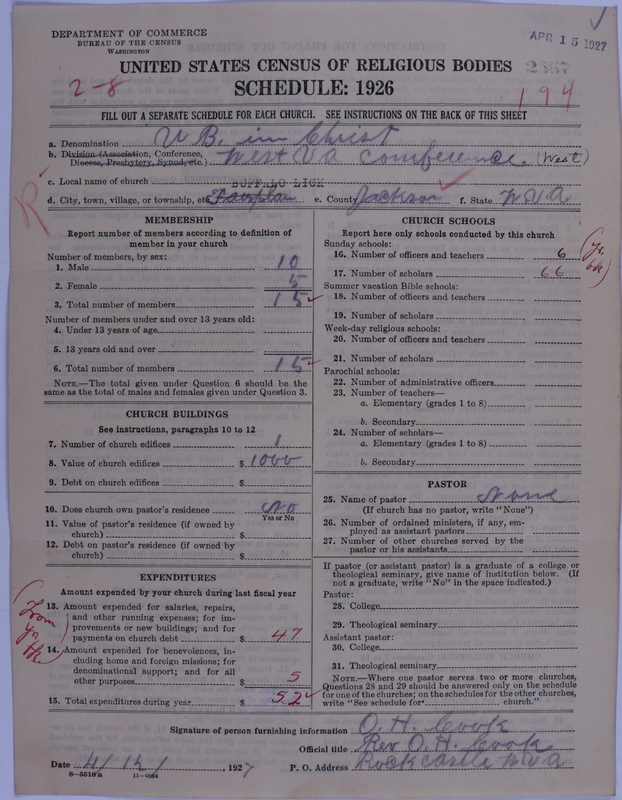 DEPARTMENT OF COMMERCE
BUREAU OF THE CENSUS
WASHINGTON
APR 15 1927
UNITED STATES CENSUS OF RELIGIOUS BODIES
SCHEDULE: 1926
2-8
194
FILL OUT A SEPARATE SCHEDULE FOR EACH CHURCH. SEE INSTRUCTIONS ON THE BACK OF THIS SHEET
a. Denomination U B. in Christ
b. Division (Association, Conference, Diocese, Presbytery, Synod, etc.) West Va conference. (West)
c. Local name of church BUFFALO LICK
d. City, town, village, or township, etc. Fairplan e. County Jackson f. State W VA
MEMBERSHIP
Report number of members according to definition of
member in your church
Number of members, by sex:
1. Male 10
2. Female 5
3. Total number of members 15
Number of members under and over 13 years old:
4. Under 13 years of age
5. 13 years old and over
6. Total number of members 15
NOTE.—The total given under Question 6 should be the
same as the total of males and females given under Question 3.
CHURCH BUILDINGS
See instructions, paragraphs 10 to 12
7. Number of church edifices 1
8. Value of church edifices $ 1000
9. Debt on church edifices $
10. Does church own pastor's residence No
Yes or No
11. Value of pastor's residence (if owned by
church) $
12. Debt on pastor's residence (if owned by
church) $
EXPENDITURES
Amount expended by your church during last fiscal year
(from yr. bk)
13. Amount expended for salaries, repairs,
and other running expenses; for im-
provements or new buildings; and for
payments on church debt $ 47
14. Amount expended for benevolences, in-
cluding home and foreign missions; for
denominational support; and for all
other purposes $ 5
15. Total expenditures during year $ 52
CHURCH SCHOOLS
Report here only schools conducted by this church
Sunday schools:
16. Number of officers and teachers 6
17. Number of scholars 66
(yr. bk)
Summer vacation Bible schools:
18. Number of officers and teachers
19. Number of scholars
Week-day religious schools:
20. Number of officers and teachers
21. Number of scholars
Parochial schools:
22. Number of administrative officers
23. Number of teachers—
a. Elementary (grades 1 to 8)
b. Secondary
24. Number of scholars—
a. Elementary (grades 1 to 8)
b. Secondary
PASTOR
25. Name of pastor None
(If church has no pastor, write "None")
26. Number of ordained ministers, if any, em-
ployed as assistant pastors
27. Number of other churches served by the
pastor or his assistants
If pastor (or assistant pastor) is a graduate of a college or
theological seminary, give name of institution below. (If
not a graduate, write "No" in the space indicated.)
Pastor:
28. College
29. Theological seminary
Assistant pastor:
30. College
31. Theological seminary
NOTE.—Where one pastor serves two or more churches,
Questions 28 and 29 should be answered only on the schedule
for one of the churches; on the schedules for the other churches,
write "See schedule for church."
Signature of person furnishing information O. H. Cook
Official title Rev O. H. Cook
Date 4/12/, 1927 P. O. Address Rockcastle W VA
8—5518a 11—9084